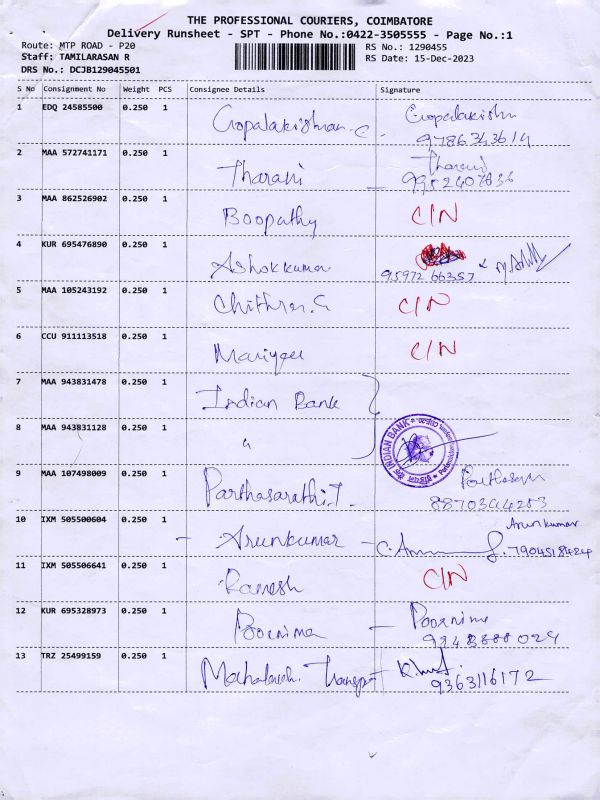 THE PROFESSIONAL COURIERS, COIMBATORE
Delivery Runsheet - SPT - Phone No.:0422-3505555 - Page No.:1
Route: MTP ROAD - P20 RS No.: 1290455
Staff: TAMILARASAN R RS Date: 15-Dec-2023
DRS No.: DCJB129045501
S No Consignment No Weight PCS Consignee Details Signature
1 EDQ 24585500 0.250 1 Gopalakishnan. C. Gopalakishn
9786343614
2 MAA 572741171 0.250 1 Tharani - Tharani
3 MAA 862526902 0.250 1 Boopathy C/N
4 KUR 695476890 0.250 1 Ashokkumar
95972 66357
5 MAA 105243192 0.250 1 Chithra. G C/N
6 CCU 911113518 0.250 1 C/N
7 MAA 943831478 0.250 1 Indian Bank
8 MAA 943831128 0.250 1 "
INDIAN BANK
9 MAA 107498009 0.250 1 Parthasarathi. T.
10 IXM 505500604 0.250 1 - Arunkumar - Arunkumar
7904518424
11 IXM 505506641 0.250 1 Ramesh C/N
12 KUR 695328973 0.250 1 Poornima - Poornima
13 TRZ 25499159 0.250 1
9363116172